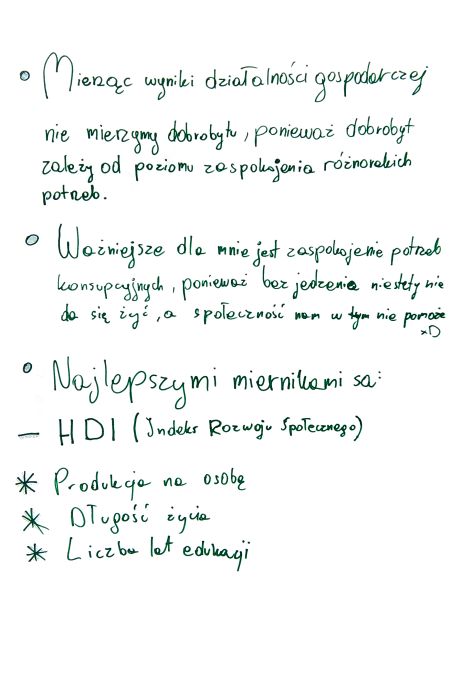 Mierząc wyniki działalności gospodarczej
nie mierzymy dobrobytu, ponieważ dobrobyt
zależy od poziomu zaspokojenia różnorakich
potrzeb.
Ważniejsze dla mnie jest zaspokojenie potrzeb
konsupcyjnych, ponieważ bez jedzenia niestety nie
da się żyć, a społeczność nam w tym nie pomoże
xD
Najlepszymi miernikami są:
– HDI (Indeks Rozwoju Społecznego)
* Produkcja na osobę
* Długość życia
* Liczba lat edukacji